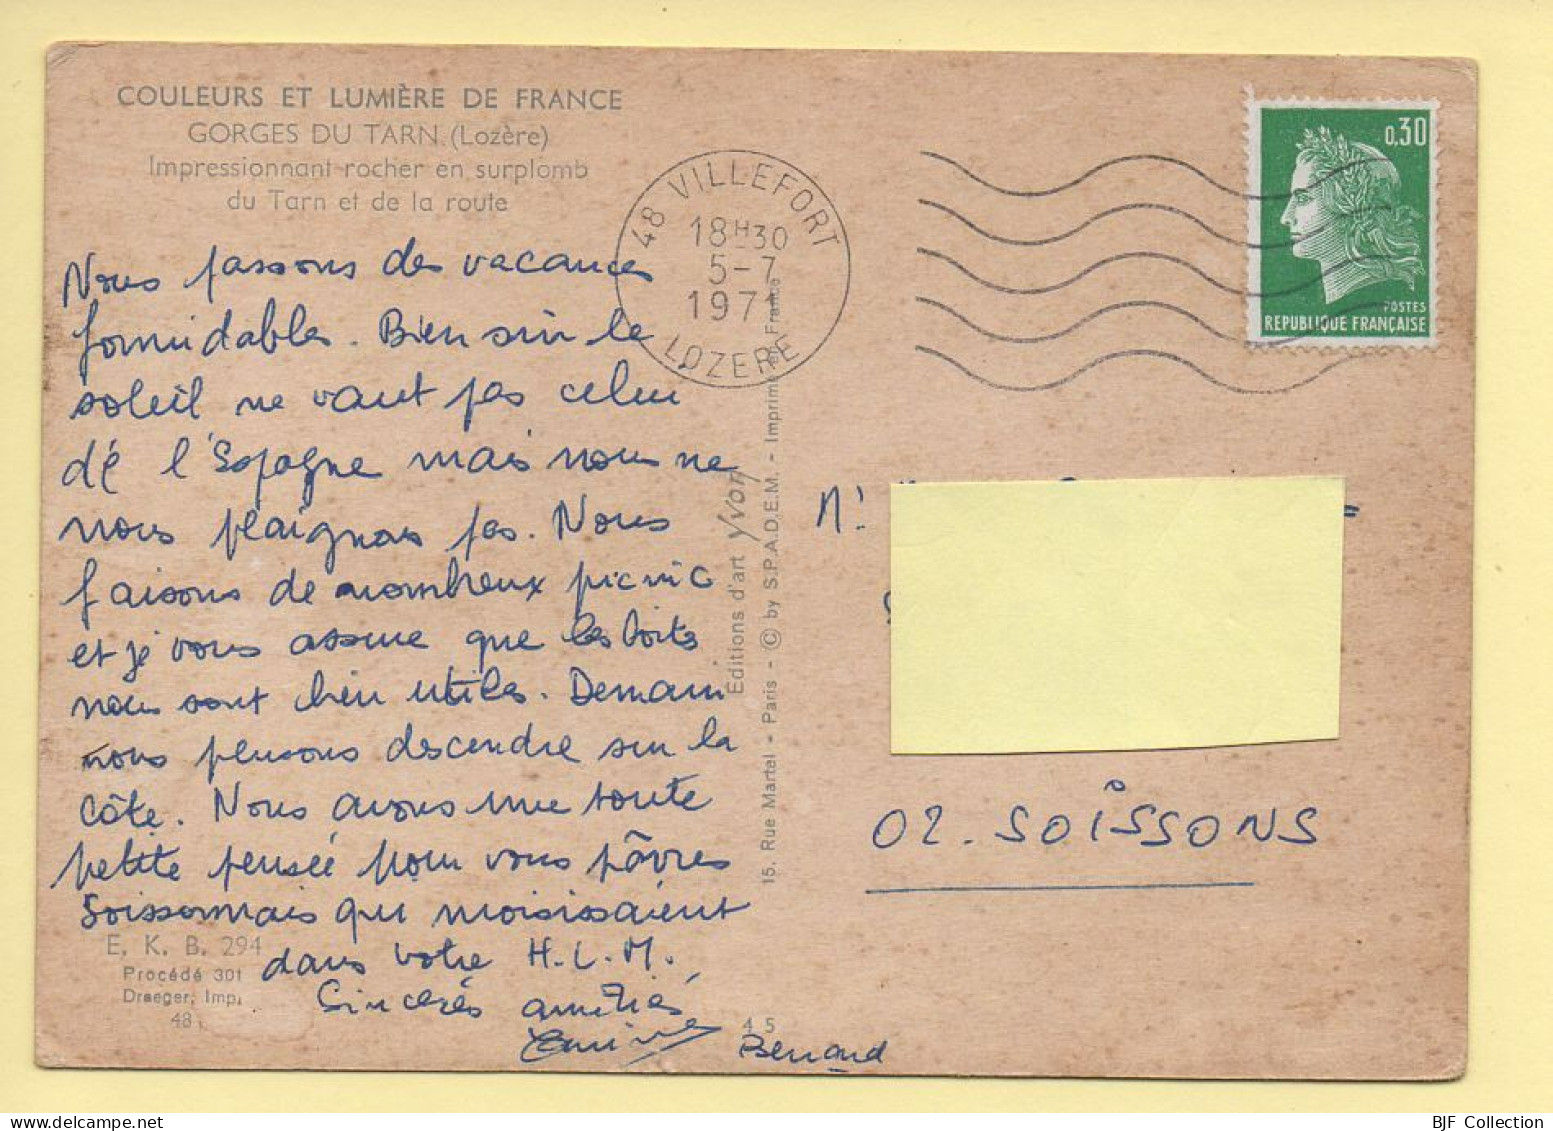 COULEURS ET LUMIÈRE DE FRANCE
GORGES DU TARN (Lozère)
Impressionnant rocher en surplomb
du Tarn et de la route
48 VILLEFORT
18H30
5-7
1971
LOZERE
0,30
POSTES
REPUBLIQUE FRANÇAISE
Nous passons des vacances
formidables. Bien sûr le
soleil ne vaut pas celui
dé l'Espagne mais nous ne
nous plaignons pas. Nous
faisons de nombreux picnic
et je vous assure que les
nous sont bien utiles. Demain
nous pensons descendre sur la
côte. Nous avons une toute
petite pensée pour vous pâvres
Soissonnais qui moisissaient
dans votre H.L.M.
Sincerès amitiés
Bernard
Editions d'art Yvon
15. Rue Martel - Paris - © by S.P.A.D.E.M. - Imprimé en France
M.
02. SOISSONS
E. K. B. 294
Procédé 301
Draeger, Imp.
48
45
BJF Collection